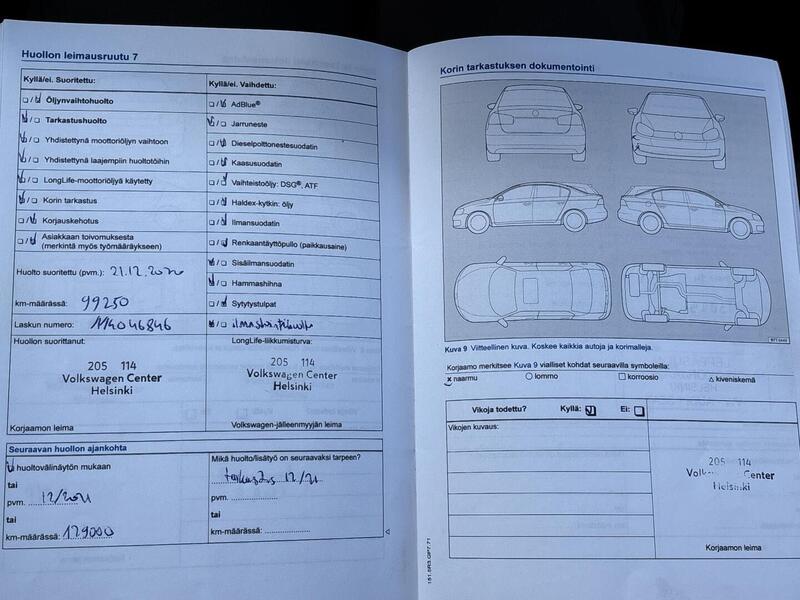 Huollon leimausruutu 7
Kyllä/ei. Suoritettu:
Öljynvaihtohuolto
Tarkastushuolto
Yhdistettynä moottoriöljyn vaihtoon
Yhdistettynä laajempiin huoltotöihin
LongLife-moottoriöljyä käytetty
Korin tarkastus
Korjauskehotus
Asiakkaan toivomuksesta
(merkintä myös työmääräykseen)
Huolto suoritettu (pvm.): 21.12.2020
km-määrässä: 99250
Laskun numero: 114046846
Huollon suorittanut:
205 114
Volkswagen Center
Helsinki
Korjaamon leima
Kyllä/ei. Vaihdettu:
AdBlue®
Jarruneste
Dieselpolttonestesuodatin
Kaasusuodatin
Vaihteistoöljy: DSG®, ATF
Haldex-kytkin: öljy
Ilmansuodatin
Renkaantäyttöpullo (paikkausaine)
Sisäilmansuodatin
Hammashihna
Sytytystulpat
LongLife-liikkumisturva:
205 114
Volkswagen Center
Helsinki
Volkswagen-jälleenmyyjän leima
Seuraavan huollon ajankohta
huoltovälinäytön mukaan
tai
pvm. 12/2021
tai
km-määrässä: 129000
Mikä huolto/lisätyö on seuraavaksi tarpeen?
tarkastus 12/21
pvm.
tai
km-määrässä:
Korin tarkastuksen dokumentointi
Kuva 9 Viitteellinen kuva. Koskee kaikkia autoja ja korimalleja.
Korjaamo merkitsee Kuva 9 vialliset kohdat seuraavilla symboleilla:
x naarmu
lommo
korroosio
kiveniskemä
Vikoja todettu? Kyllä: Ei:
Vikojen kuvaus:
205 114
Center
Korjaamon leima
151.5R3.GP7.71